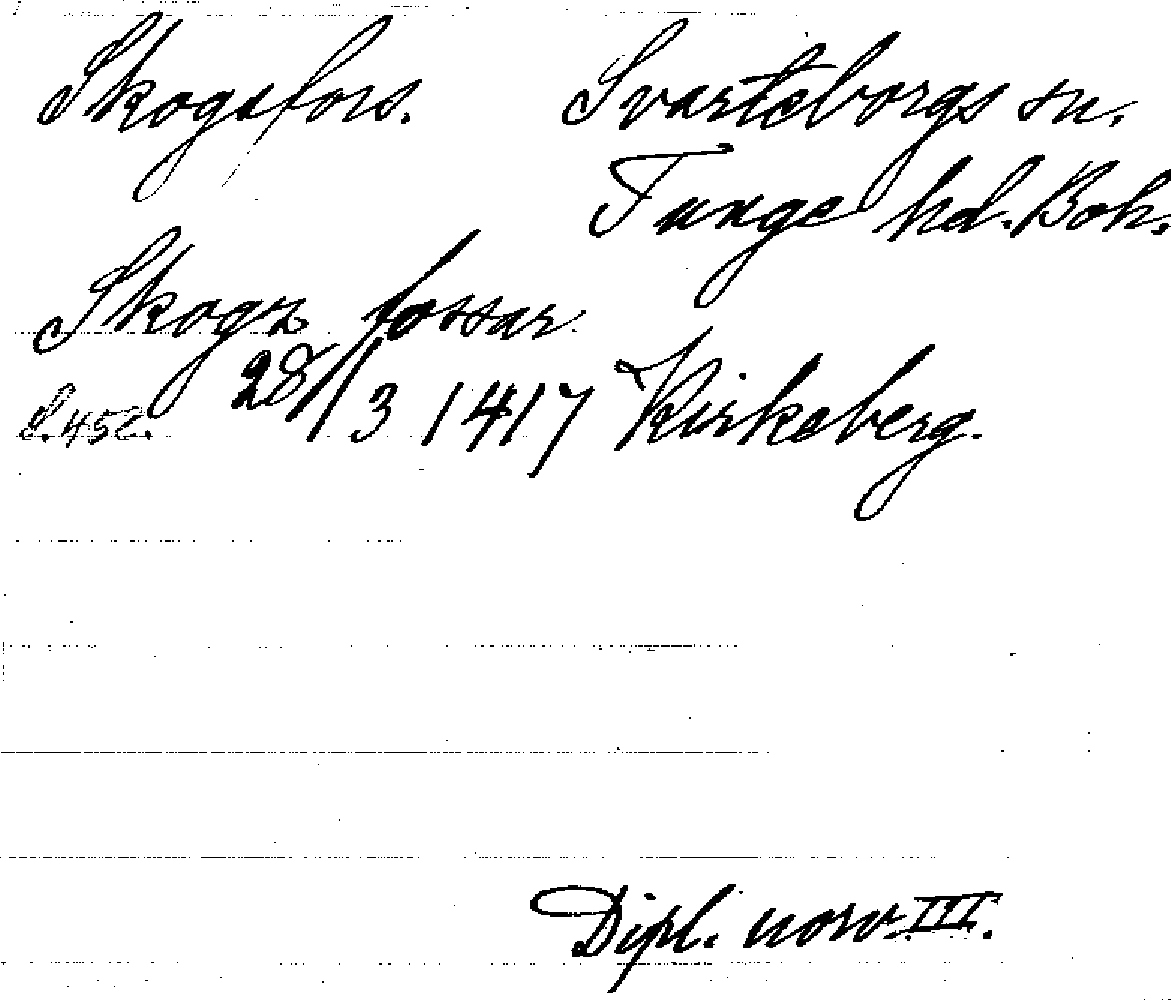 Skogsfors. Svarteborgs sn.
Tunge hd. Boh.
Skogx fossar
S. 452. 28/3 1417 Kirkeberg.
Dipl. norv III.